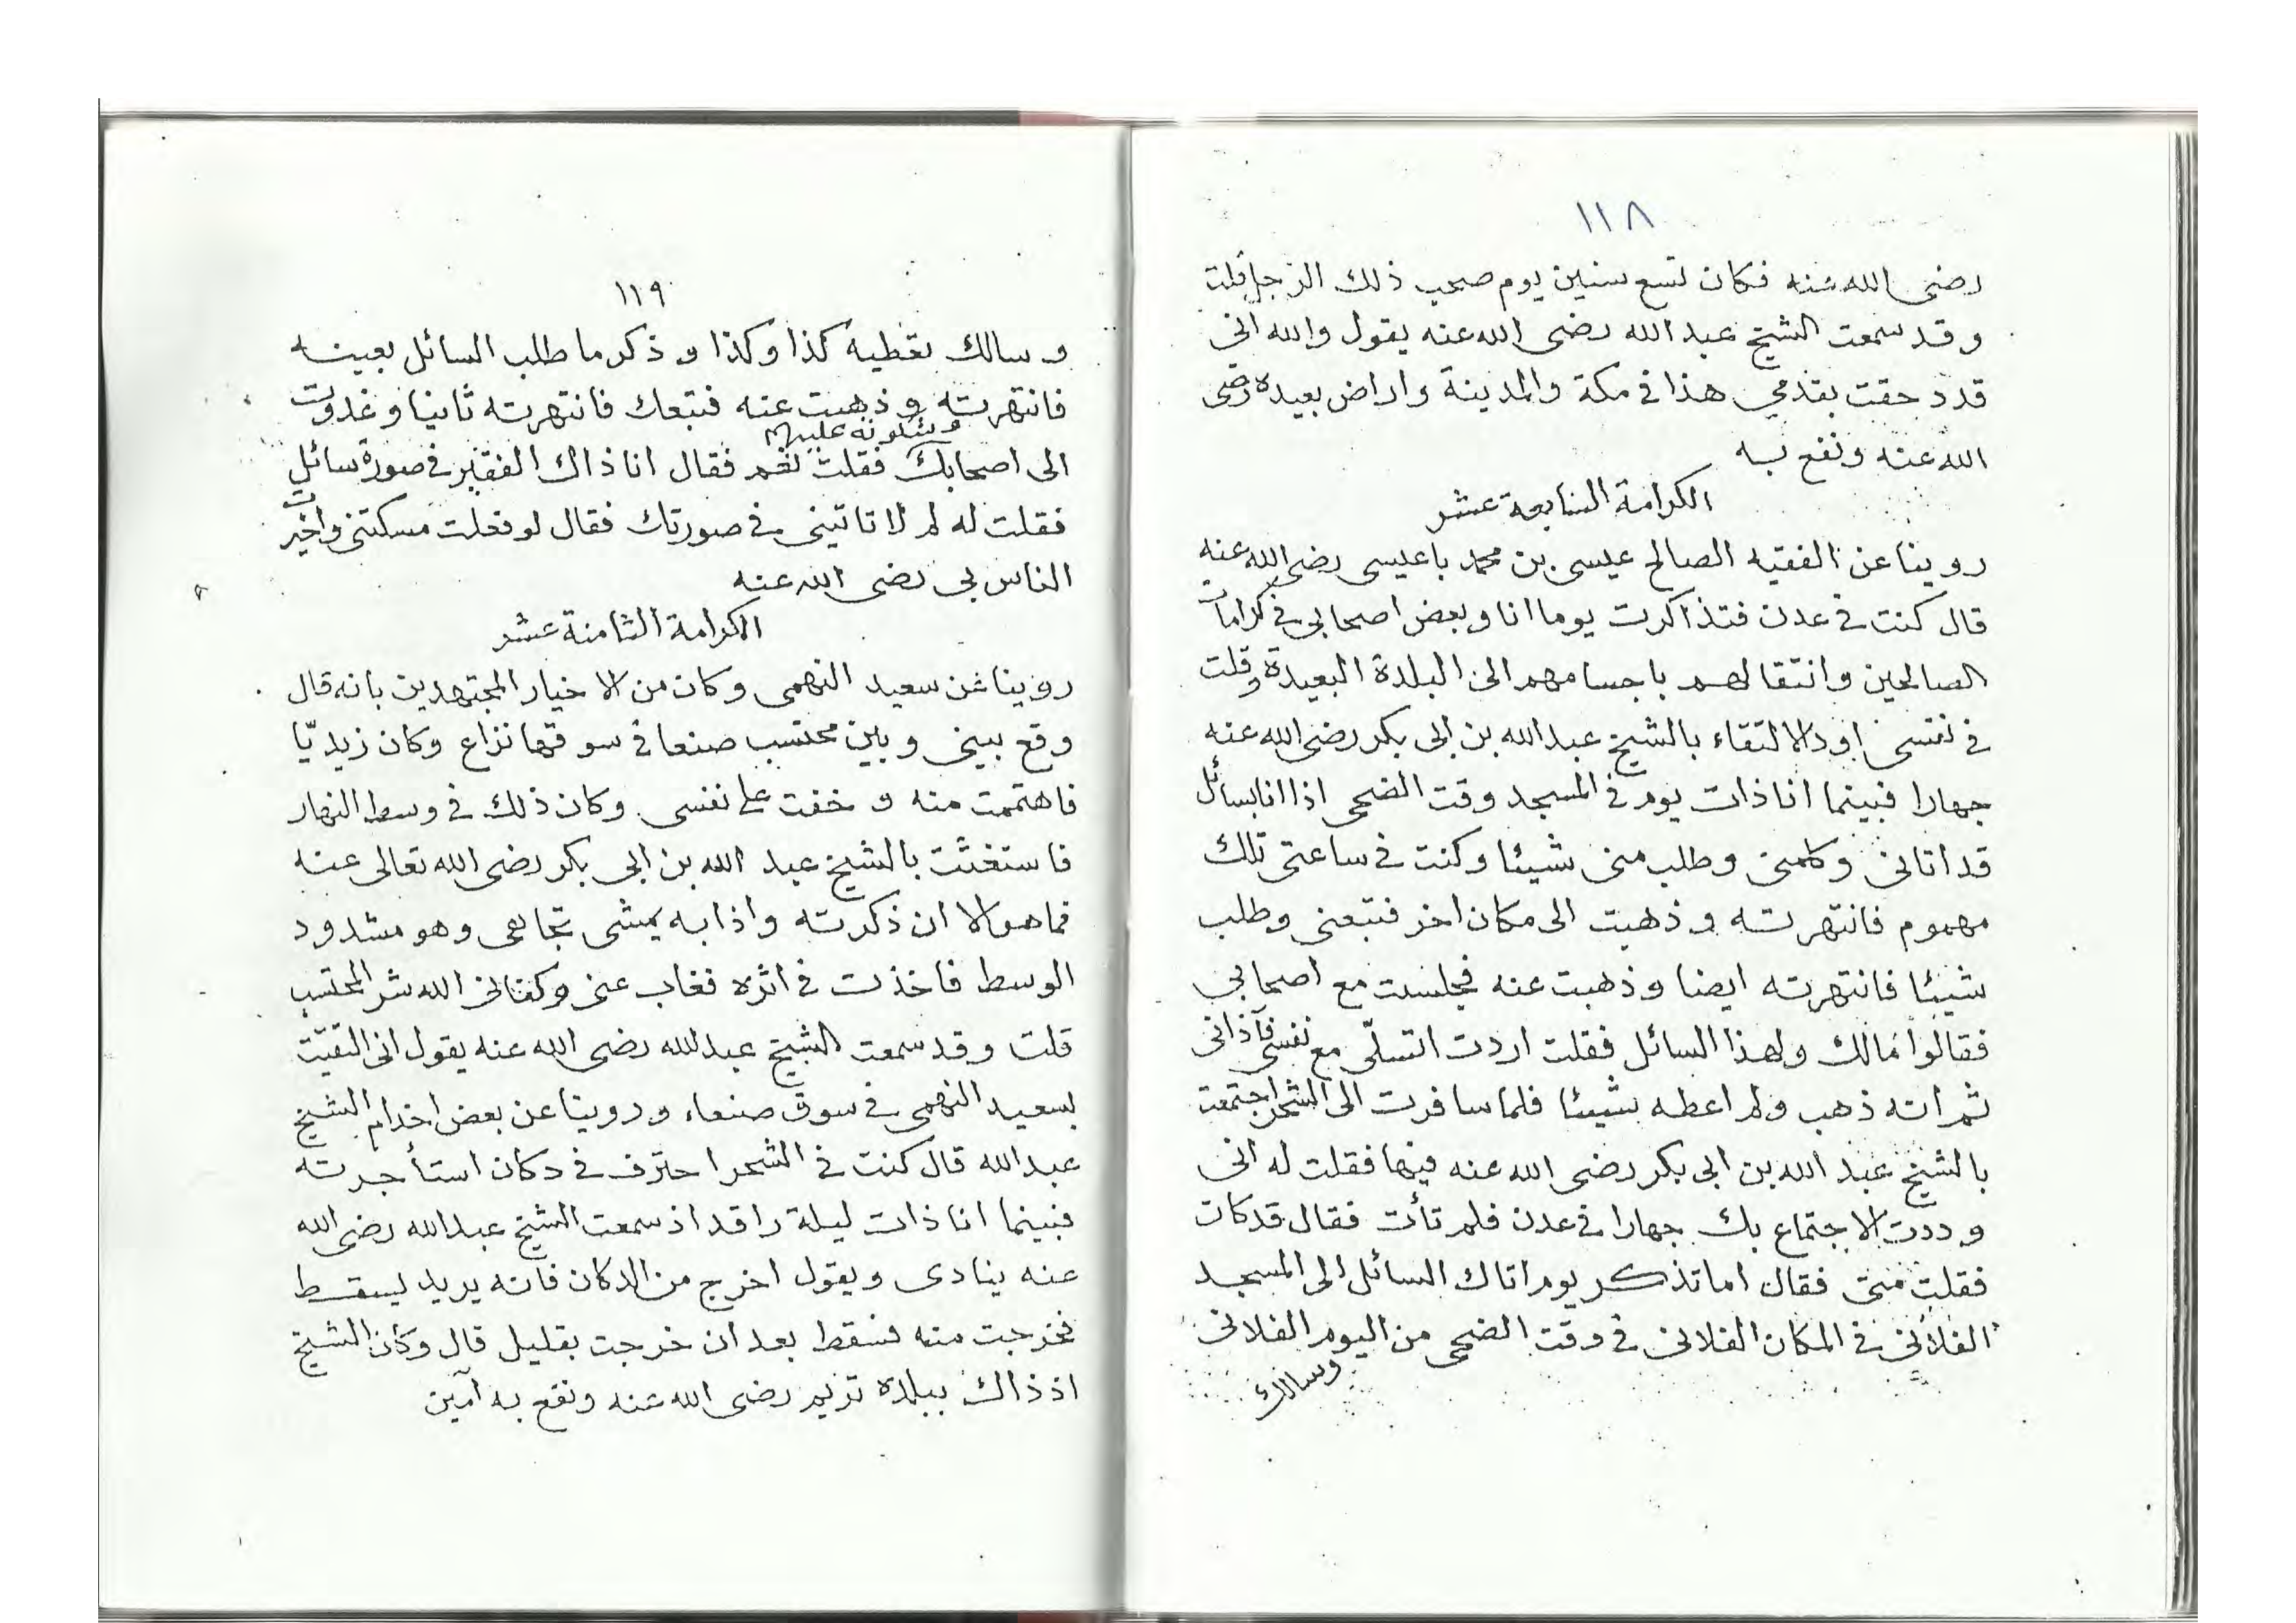 ١١٨
رضى الله عنه فكان تسع سنين يوم صحب ذلك الرجل قلت
وقد سمعت الشيخ عبد الله رضى الله عنه يقول والله انى
قد دحقت بقدمي هذا في مكة والمدينة واراض بعيده رضى
الله عنه ونفع به
الكرامة السابعة عشر
روينا عن الفقيه الصالح عيسى بن محمد باعيسى رضى الله عنه
قال كنت في عدن فتذاكرت يوما انا وبعض اصحابي في كرامات
الصالحين وانتقالهم باجسامهم الى البلدة البعيدة وقلت
في نفسى اود الالتقاء بالشيخ عبد الله بن ابى بكر رضى الله عنه
جهارا فبينما انا ذات يوم في المسجد وقت الضحى اذا انا بسائل
قد اتانى وكلمنى وطلب منى شيئا وكنت في ساعتى تلك
مهموم فانتهرته وذهبت الى مكان اخر فتبعنى وطلب
شيئا فانتهرته ايضا وذهبت عنه فجلست مع اصحابي
فقالوا مالك ولهذا السائل فقلت اردت اتسلّى مع نفسى فآذانى
ثم انه ذهب ولم اعطه شيئا فلما سافرت الى الشحر اجتمعت
بالشيخ عبد الله بن ابى بكر رضى الله عنه فيها فقلت له انى
وددت الاجتماع بك جهارا في عدن فلم تأت فقال قد كان
فقلت متى فقال اما تذكر يوم اتاك السائل الى المسجد
الفلانى في المكان الفلانى في وقت الضحى من اليوم الفلانى
وسالك
١١٩
وسالك تعطيه كذا وكذا وذكر ما طلب السائل بعينه
فانتهرته وذهبت عنه فتبعك فانتهرته ثانيا وغدوت
وشكوته عليهم
الى اصحابك فقلت نعم فقال انا ذاك الفقير في صورة سائل
فقلت له لم لا تاتينى في صورتك فقال لو فعلت مسكتنى واخبرت
الناس بى رضى الله عنه
الكرامة الثامنة عشر
روينا عن سعيد النهمى وكان من الاخيار المجتهدين بانه قال
وقع بينى وبين محتسب صنعا في سوقها نزاع وكان زيديّا
فاهتممت منه وخفت على نفسى وكان ذلك في وسط النهار
فاستغثت بالشيخ عبد الله بن ابى بكر رضى الله تعالى عنه
فما هو الا ان ذكرته واذا به يمشى تجاهى وهو مشدود
الوسط فاخذت في اثره فغاب عنى وكفانى الله شر المحتسب
قلت وقد سمعت الشيخ عبد الله رضى الله عنه يقول انى التقيت
بسعيد النهمى في سوق صنعاء وروينا عن بعض اخدام الشيخ
عبد الله قال كنت في الشحر احترف في دكان استأجرته
فبينما انا ذات ليلة راقد اذ سمعت الشيخ عبد الله رضى الله
عنه ينادى ويقول اخرج من الدكان فانه يريد ليسقط
فخرجت منه فسقط بعد ان خرجت بقليل قال وكان الشيخ
اذ ذاك ببلده تريم رضى الله عنه ونفع به آمين